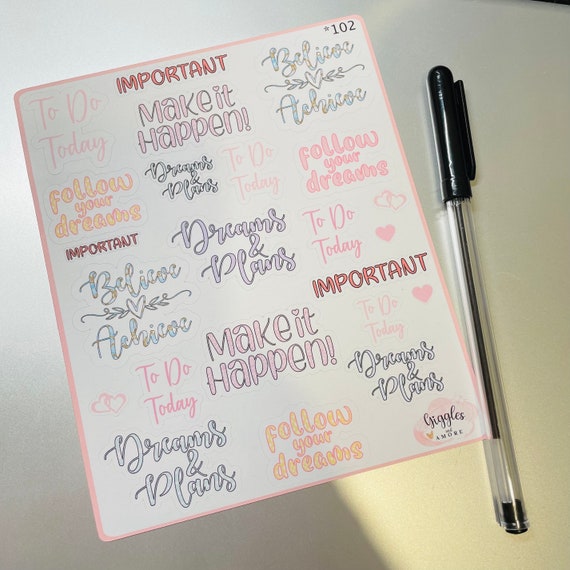 *102
IMPORTANT
Believe
Achieve
To Do
Today
Make it
Happen!
Dreams
&
Plans
To Do
Today
follow
your
dreams
follow
your
dreams
IMPORTANT
Dreams
&
Plans
To Do
Today
Believe
Achieve
IMPORTANT
To Do
Today
Make it
Happen!
To Do
Today
Dreams
&
Plans
Dreams
&
Plans
follow
your
dreams
Giggles
and
AMORE